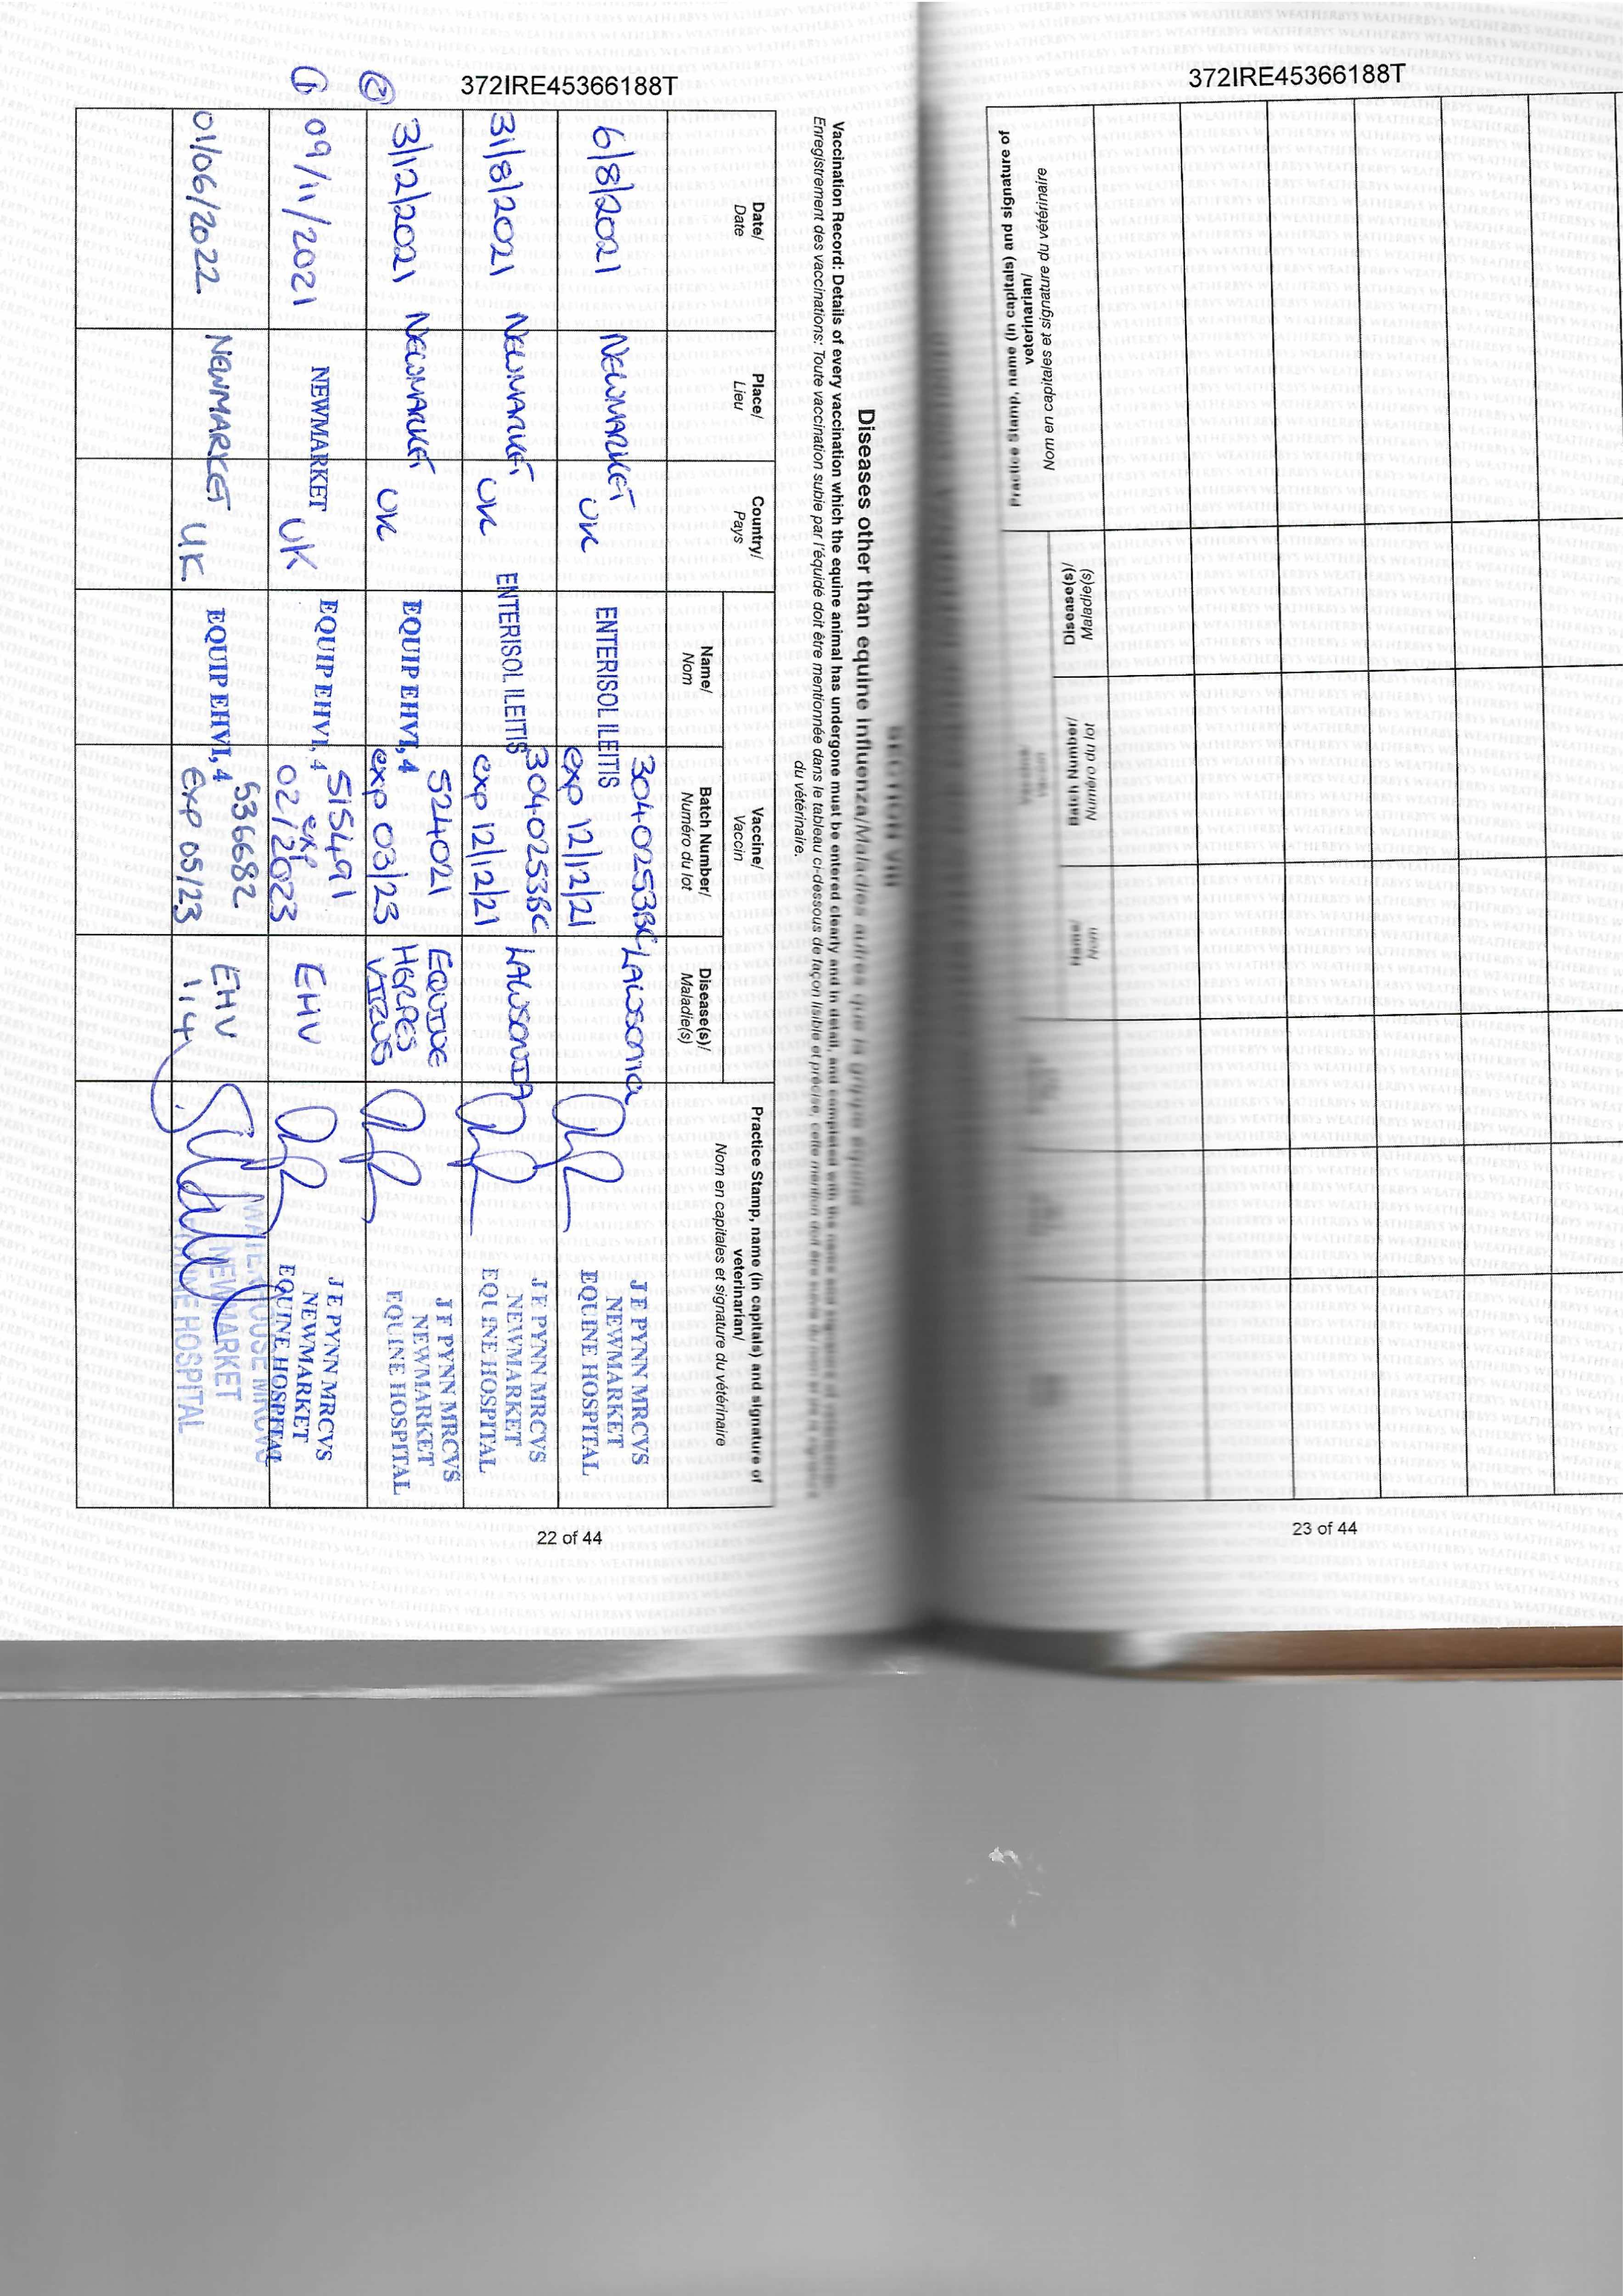 372IRE45366188T
Diseases other than equine influenza/Maladies autres que la grippe equine
Vaccination Record: Details of every vaccination which the equine animal has undergone must be entered clearly and in detail, and completed with the name and signature of
Enregistrement des vaccinations: Toute vaccination subie par l'équidé doit être mentionnée dans le tableau ci-dessous de façon lisible et précise, cette mention doit être
du vétérinaire.
Date/
Date
Place/
Lieu
Country/
Pays
Vaccine/
Vaccin
Name/
Nom
Batch Number/
Numéro du lot
Disease(s)/
Maladie(s)
Practice Stamp, name (in capitals) and signature of
veterinarian/
Nom en capitales et signature du vétérinaire
6/8/2021
NEWMARKET
UK
ENTERISOL ILEITIS
3040253BC
exp 12/12/21
LAWSONIA
J E PYNN MRCVS
NEWMARKET
EQUINE HOSPITAL
31/8/2021
NEWMARKET
UK
ENTERISOL ILEITIS
3040253BC
exp 12/12/21
LAWSONIA
J E PYNN MRCVS
NEWMARKET
EQUINE HOSPITAL
②
3/12/2021
NEWMARKET
UK
EQUIP EHV1,4
524021
exp 03/23
EQUINE
HERPES
VIRUS
J E PYNN MRCVS
NEWMARKET
EQUINE HOSPITAL
①
09/11/2021
NEWMARKET
UK
EQUIP EHV1,4
515491
exp
02/2023
EHV
J E PYNN MRCVS
NEWMARKET
EQUINE HOSPITAL
01/06/2022
NEWMARKET
UK.
EQUIP EHV1,4
536682
exp 05/23
EHV
1,4
NEWMARKET
HOSPITAL
22 of 44
372IRE45366188T
Practice Stamp, name (in capitals) and signature of
veterinarian/
Nom en capitales et signature du vétérinaire
Diseases(s)/
Maladie(s)
Batch Number/
Numéro du lot
Name/
Nom
23 of 44